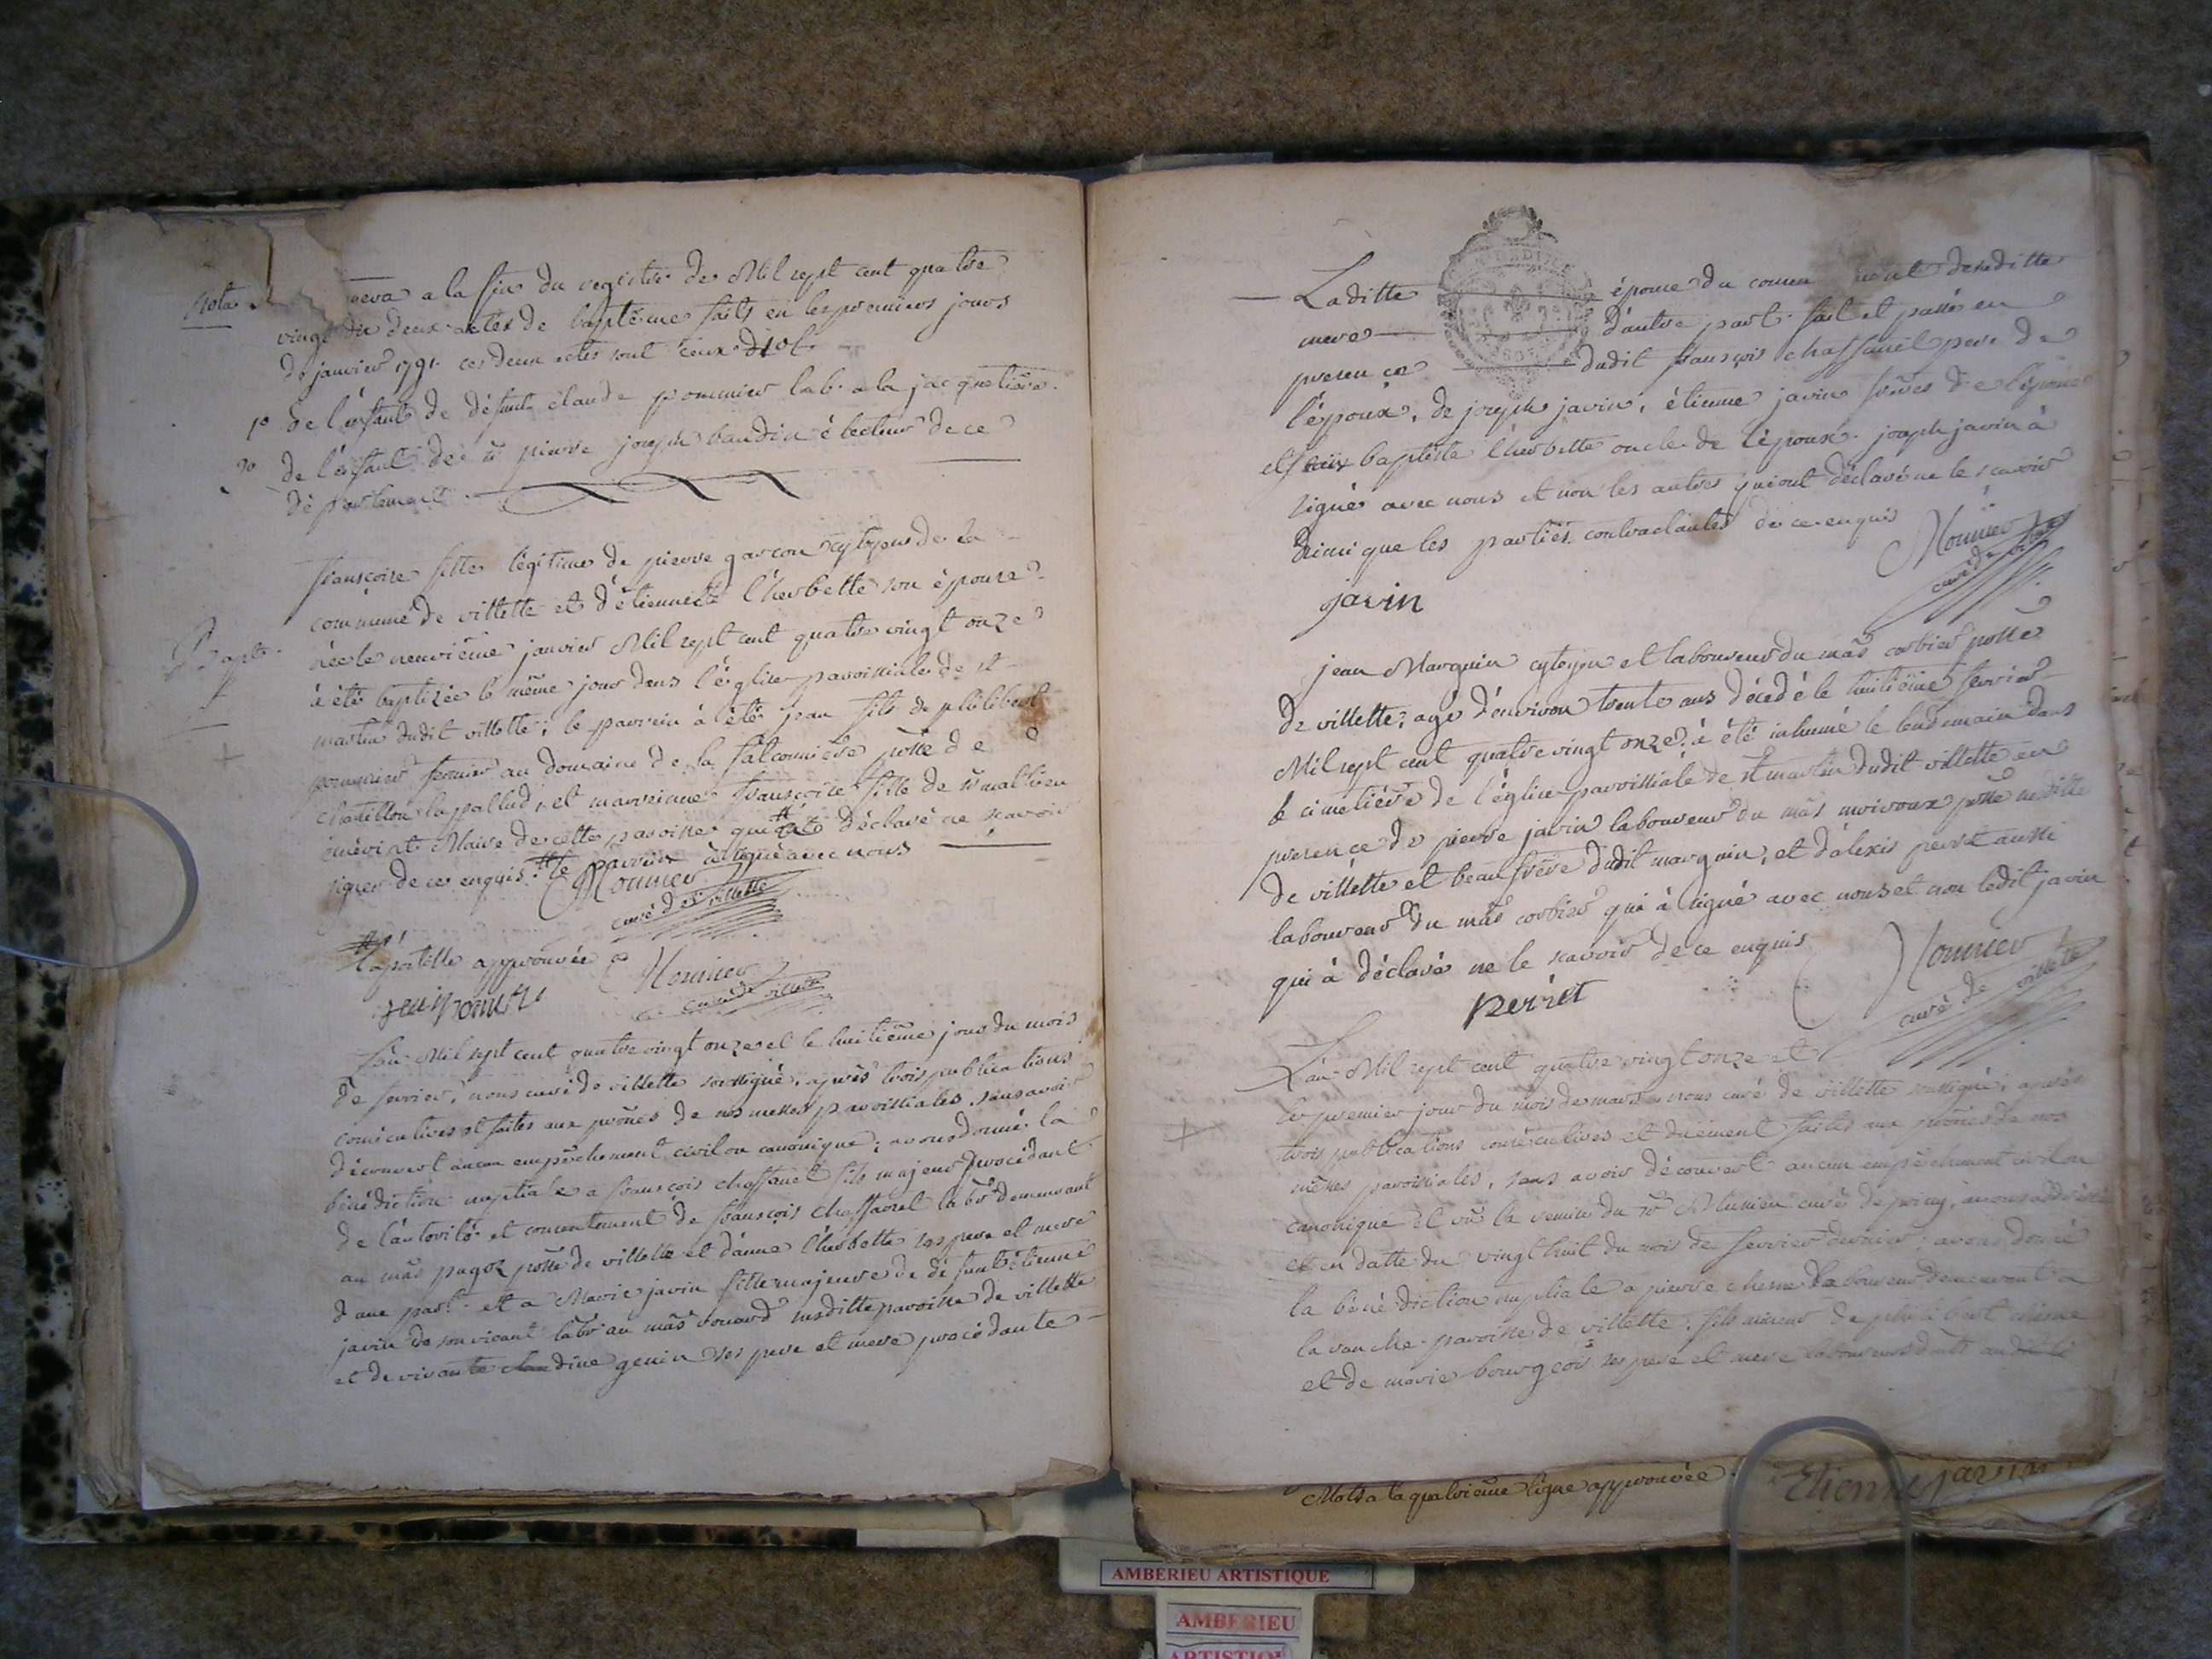 Nota
a la fin du registre de Mil sept cent quatre
vingt dix deux actes de baptême faits en les premiers jours
de janvier 1791. ces deux actes sont ceux
1° de l'enfant de défunt claude pommier lab. a la jacquetiere.
2° de l'enfant de sr pierre joseph baudin électeur de ce
département.
Bapte.
françoise fille légitime de pierre garçon cytoyen de la
commune de villette et d'étiennette l'herbette son épouse
née le neuvième janvier Mil sept cent quatre vingt onze
à été baptizée le même jour dans l'église paroissiale de st
martin dudit villette; le parrein à été jean fils de philibert
pommier fermier au domaine de la falconnière psse de
chatillon la pallud, et marreinne françoise fille de sr mathieu
Maire de cette paroisse qui déclaré ne scavoir
signer de ce enquis. le parrein à signé avec nous
Monnier
curé de villette
apostille approuvée
Monnier
curé de villette
L'an Mil sept cent quatre vingt onze et le huitième jour du mois
de fevrier, nous curé de villette soussigné, après trois publications
consécutives et faites aux prônes de nos messes paroissiales, sans avoir
découvert aucun empêchement civil ou canonique; avons donné la
bénédiction nuptiale a françois chaffanel fils majeur procédant
de l'autorité et consentement de françois chaffanel labr demeurant
au mâs pagoz psse de villette et d'anne l'herbette ses pere et mere
d'une part. et a Marie javin fille majeure de défunt étienne
javin de son vivant labr au mâs rouard susditte paroisse de villette
et de vivante claudine genin ses pere et mere procédante
Laditte épouse du de saditte
mere d'autre part. fait et passé en
presence dudit françois chaffanel pere de
l'époux, de joseph javin, étienne javin frères de l'épouse
et baptiste l'herbette oncle de l'époux. joseph javin à
signé avec nous et non les autres qui ont déclaré ne le scavoir
ainsi que les parties contractantes de ce enquis
Monnier
curé de villette
javin
jean Marguin cytoyen et laboureur du mâs corbier psse
de villette, agé d'environ trente ans décédé le huitième fevrier
Mil sept cent quatre vingt onze, à été inhumé le lendemain dans
le cimetière de l'église paroissiale de st martin dudit villette en
presence de pierre javin laboureur du mâs moiroux psse susditte
de villette et beau frère dudit marguin, et d'alexis perret aussi
laboureur du mâs corbier qui à signé avec nous et non ledit javin
qui à déclaré ne le scavoir de ce enquis
Monnier
curé de villette
perret
L'an Mil sept cent quatre vingt onze et
le premier jour du mois de mars nous curé de villette soussigné, après
trois publications consécutives et duement faites aux prônes de nos
messes paroissiales, sans avoir découvert aucun empêchement civil ou
canonique et vû la remise du sr curé de priay,
et en datte du vingt huit du mois de fevrier dernier: avons donné
la bénédiction nuptiale a pierre chesne laboureur demeurant a
la ranche paroisse de villette. fils mineur de philibert chesne
et de marie bourgeois ses pere et mere
Mots a la quatrième ligne approuvée.
Etienne javin
AMBERIEU ARTISTIQUE
AMBERIEU
ARTISTIQUE